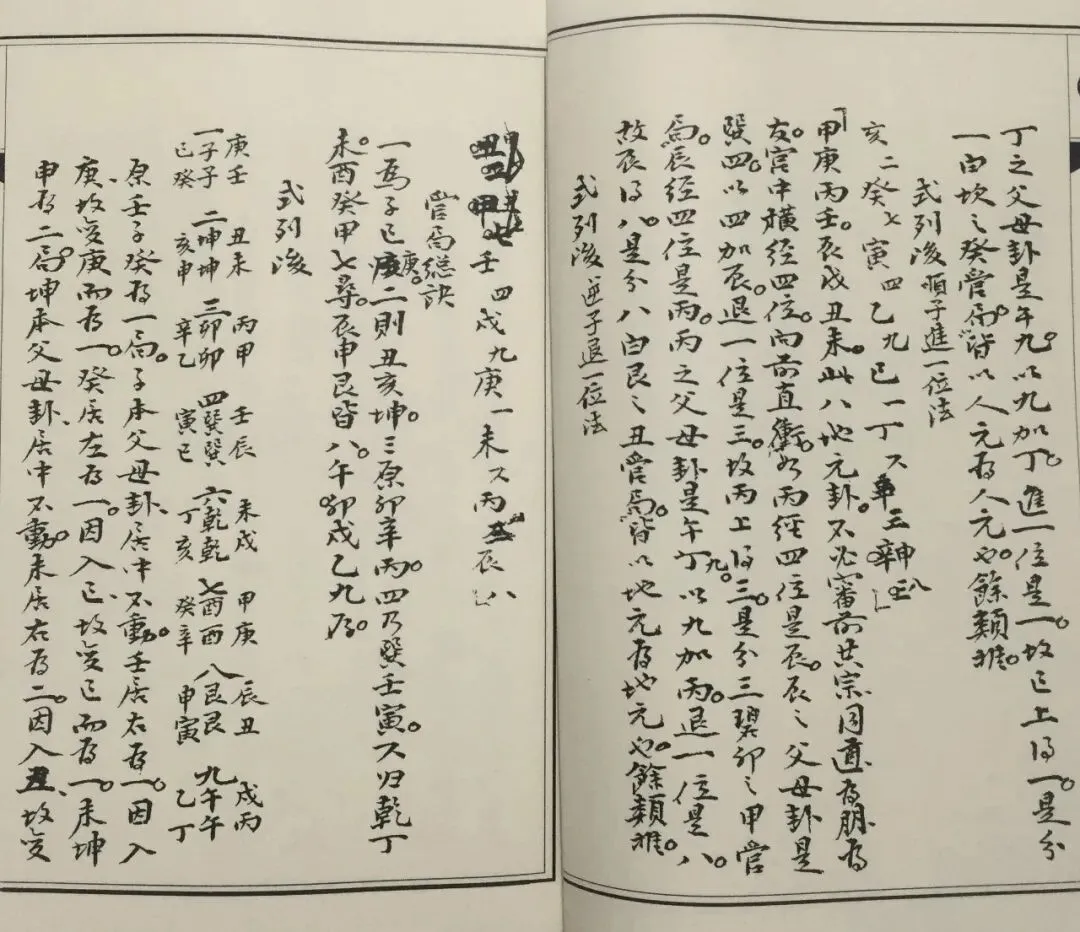 丁之父母卦是午九以九加丁進一位是一故巳上得一是分
一白坎之癸管局皆以人元為人元也餘類推
式列後順子進一位法
亥二癸七寅四乙九巳一丁六辛三申八
甲庚丙壬辰戌丑未此八地元卦不必審前共宗同道為朋為
友宮中橫經四位向前直衝如丙經四位是辰辰之父母卦是
巽四以四加辰退一位是三故丙上得三是分三碧卯之甲管
局辰經四位是丙丙之父母卦是午丁九以九加丙退一位是八
故辰得八是分八白艮之丑管局皆以地元為地元也餘類推
式列後逆子退一位法
壬四戌九庚一未六丙三辰八
管局總訣
一為子巳庚二則丑亥坤三原卯辛丙四乃巽壬寅六归乾丁
未酉癸甲七尋辰申艮皆八午卯戌乙九為
式列後
庚壬 丑未 丙甲 壬辰 未戌 甲庚 辰丑 戌丙
一子子 二坤坤 三卯卯 四巽巽 六乾乾 七酉酉 八艮艮 九午午
巳癸 亥申 辛乙 寅巳 丁亥 癸辛 申寅 乙丁
原壬子癸為一局子本父母卦居中不動壬居右為一因入
庚坎变庚而為一癸居左為一因入巳坎变巳而為一未坤
申為二局坤本父母卦居中不動未居右為二因入丑坎变